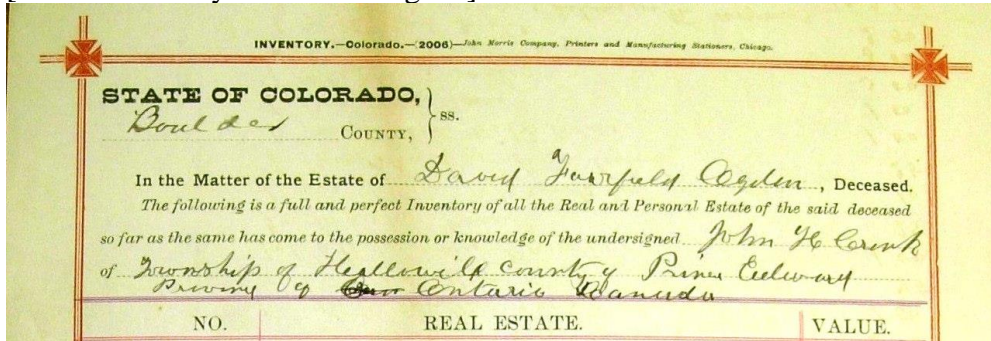 INVENTORY.—Colorado.—(2006)—John Morris Company, Printers and Manufacturing Stationers, Chicago.
STATE OF COLORADO,
Boulder COUNTY, } ss.
In the Matter of the Estate of David Fairfield Ogden, Deceased.
The following is a full and perfect Inventory of all the Real and Personal Estate of the said deceased
so far as the same has come to the possession or knowledge of the undersigned John H
of Township of County of Prince Edward
Province of Ontario Canada
NO. REAL ESTATE. VALUE.